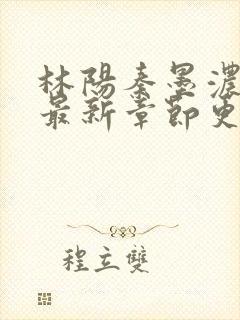 林陽秦墨濃
最新章節更
程立雙